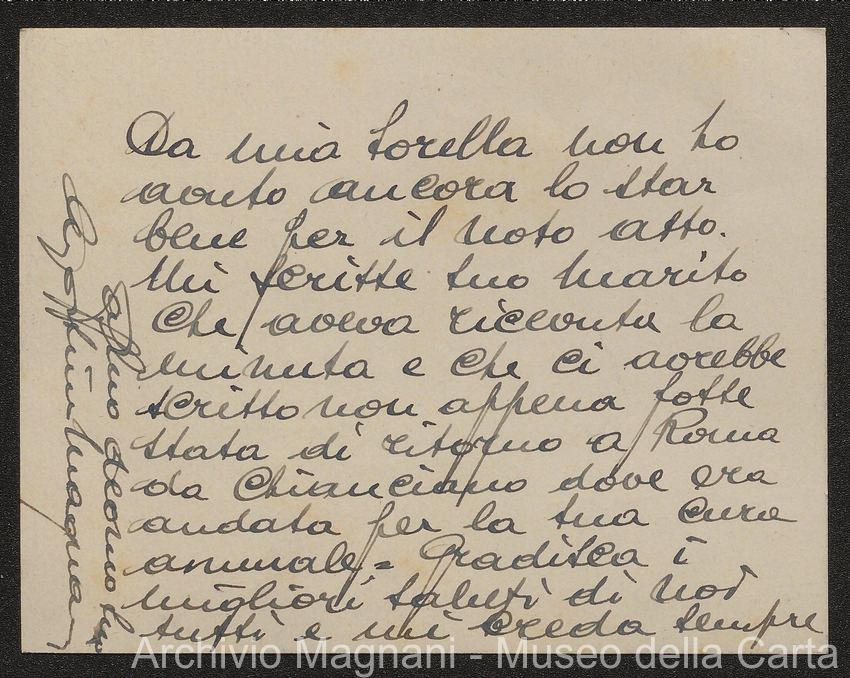 Da mia sorella non ho
avuto ancora lo star
bene per il noto atto.
Mi scrisse suo marito
che aveva ricevuta la
minuta e che ci avrebbe
scritto non appena fosse
stata di ritorno a Roma
da Chianciano dove era
andata per la sua cura
annuale = Gradisca i
migliori saluti di noi
tutti e mi creda sempre
Magnani
Archivio Magnani - Museo della Carta